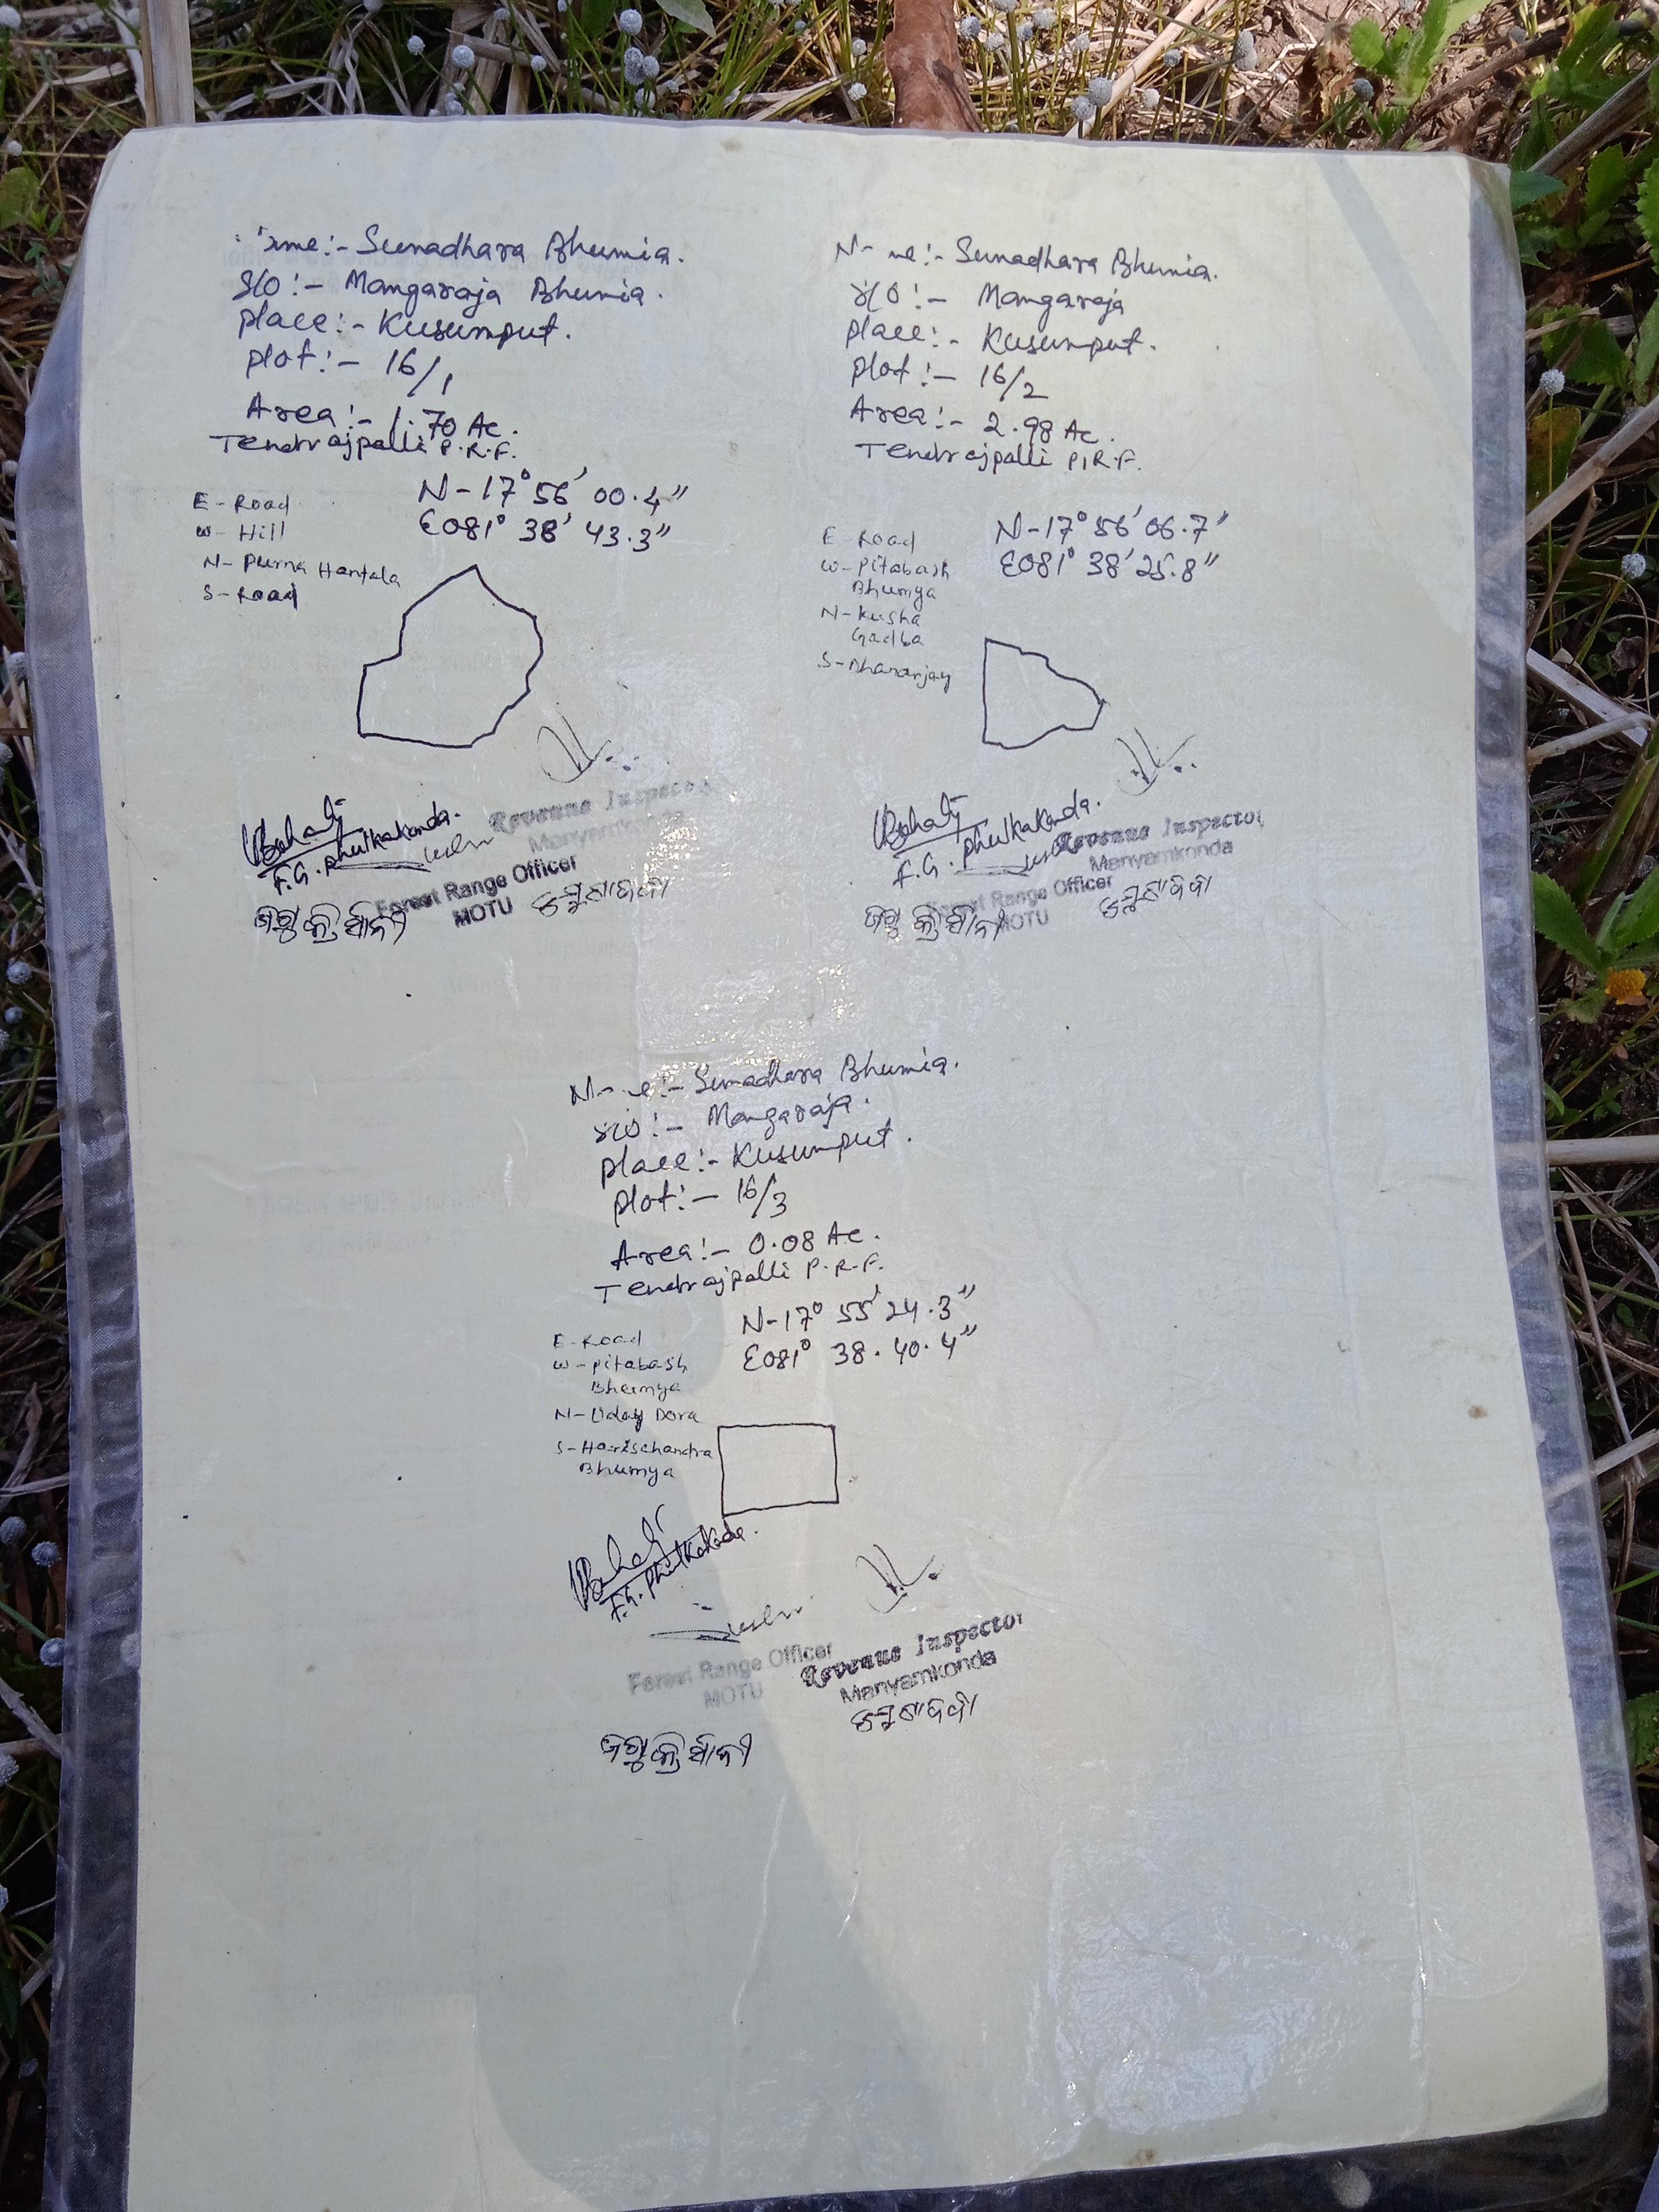 Name:- Sunadhara Bhumia.
S/O:- Mangaraja Bhumia.
Place:- Kusumput.
Plot:- 16/1
Area:- 1.70 Ac.
Tendrajpalli P.R.F.
N-17° 56' 00.4"
E081° 38' 43.3"
E-Road
W-Hill
N-Purna Hantala
S-Road
F.G. Phulkakonda.
Revenue Inspector
Manyamkonda
Forest Range Officer
MOTU
N- me:- Sunadhara Bhumia.
S/O:- Mangaraja
Place:- Kusumput.
Plot:- 16/2
Area:- 2.98 Ac.
Tendrajpalli P.R.F.
N-17° 56' 06.7"
E081° 38' 25.8"
E-Road
W-Pitabash
Bhumya
N-Kusha
Gadba
S-Dhananjay
F.G. Phulkakonda.
Revenue Inspector
Manyamkonda
Forest Range Officer
MOTU
N- me:- Sunadhara Bhumia.
S/O:- Mangaraja.
Place:- Kusumput.
Plot:- 16/3
Area:- 0.08 Ac.
Tendrajpalli P.R.F.
N-17° 55' 24.3"
E081° 38. 40.4"
E-Road
W-Pitabash
Bhumya
N-Uday Dora
S-Harischandra
Bhumya
F.G. Phulkakonda.
Forest Range Officer
MOTU
Revenue Inspector
Manyamkonda